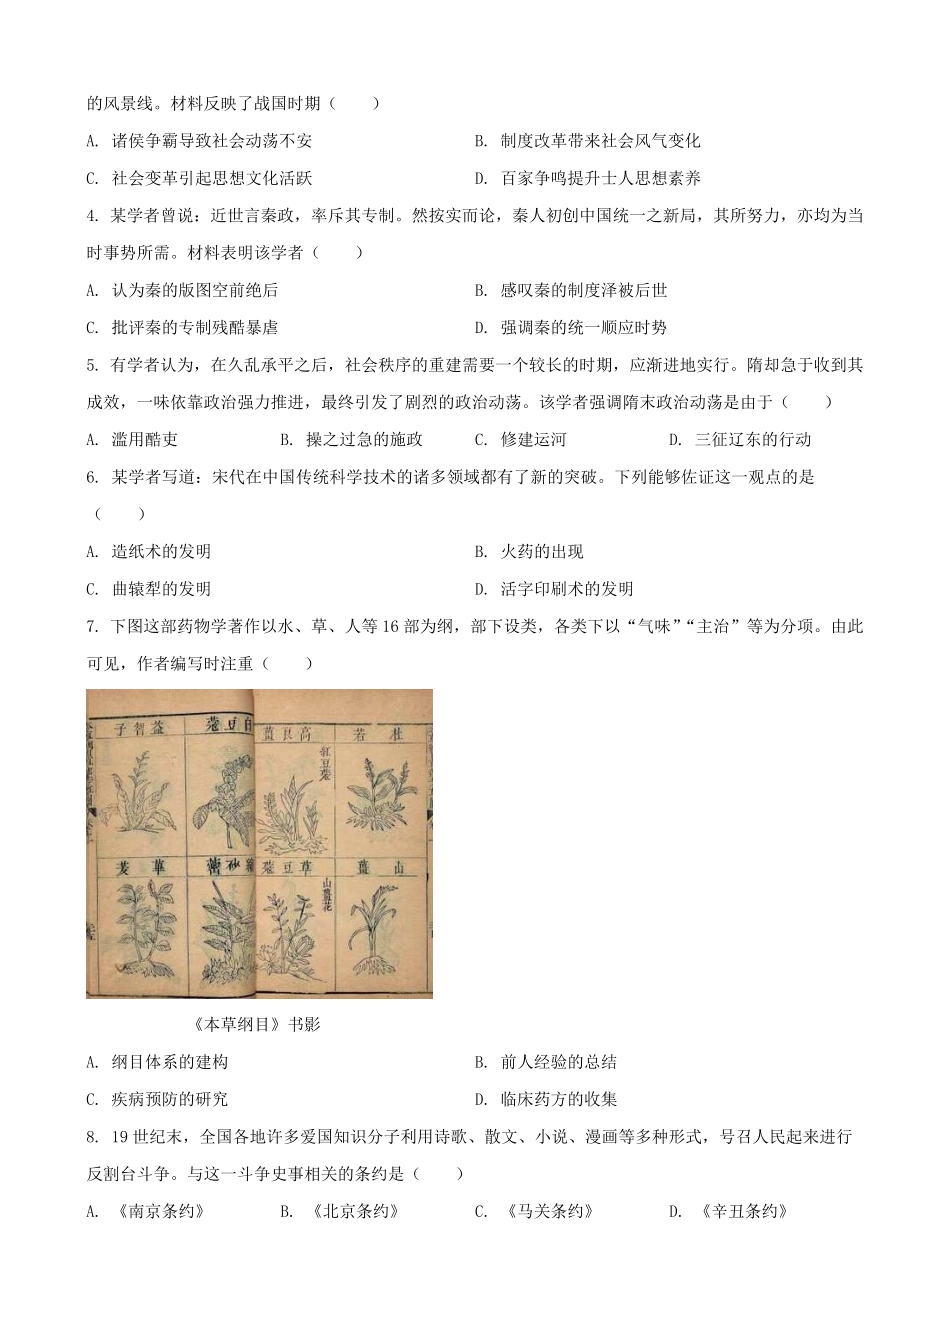 的风景线。材料反映了战国时期（　　）
A. 诸侯争霸导致社会动荡不安　　B. 制度改革带来社会风气变化
C. 社会变革引起思想文化活跃　　D. 百家争鸣提升士人思想素养
4. 某学者曾说：近世言秦政，率斥其专制。然按实而论，秦人初创中国统一之新局，其所努力，亦均为当
时事势所需。材料表明该学者（　　）
A. 认为秦的版图空前绝后　　B. 感叹秦的制度泽被后世
C. 批评秦的专制残酷暴虐　　D. 强调秦的统一顺应时势
5. 有学者认为，在久乱承平之后，社会秩序的重建需要一个较长的时期，应渐进地实行。隋却急于收到其
成效，一味依靠政治强力推进，最终引发了剧烈的政治动荡。该学者强调隋末政治动荡是由于（　　）
A. 滥用酷吏　　B. 操之过急的施政　　C. 修建运河　　D. 三征辽东的行动
6. 某学者写道：宋代在中国传统科学技术的诸多领域都有了新的突破。下列能够佐证这一观点的是
（　　）
A. 造纸术的发明　　B. 火药的出现
C. 曲辕犁的发明　　D. 活字印刷术的发明
7. 下图这部药物学著作以水、草、人等 16 部为纲，部下设类，各类下以“气味”“主治”等为分项。由此
可见，作者编写时注重（　　）
子智益　蔻豆白　薑良高　若杜
紅豆蔻
茇蓽　蔤砂縮　蔻豆草　薑山
山薑花
《本草纲目》书影
A. 纲目体系的建构　　B. 前人经验的总结
C. 疾病预防的研究　　D. 临床药方的收集
8. 19 世纪末，全国各地许多爱国知识分子利用诗歌、散文、小说、漫画等多种形式，号召人民起来进行
反割台斗争。与这一斗争史事相关的条约是（　　）
A. 《南京条约》　　B. 《北京条约》　　C. 《马关条约》　　D. 《辛丑条约》